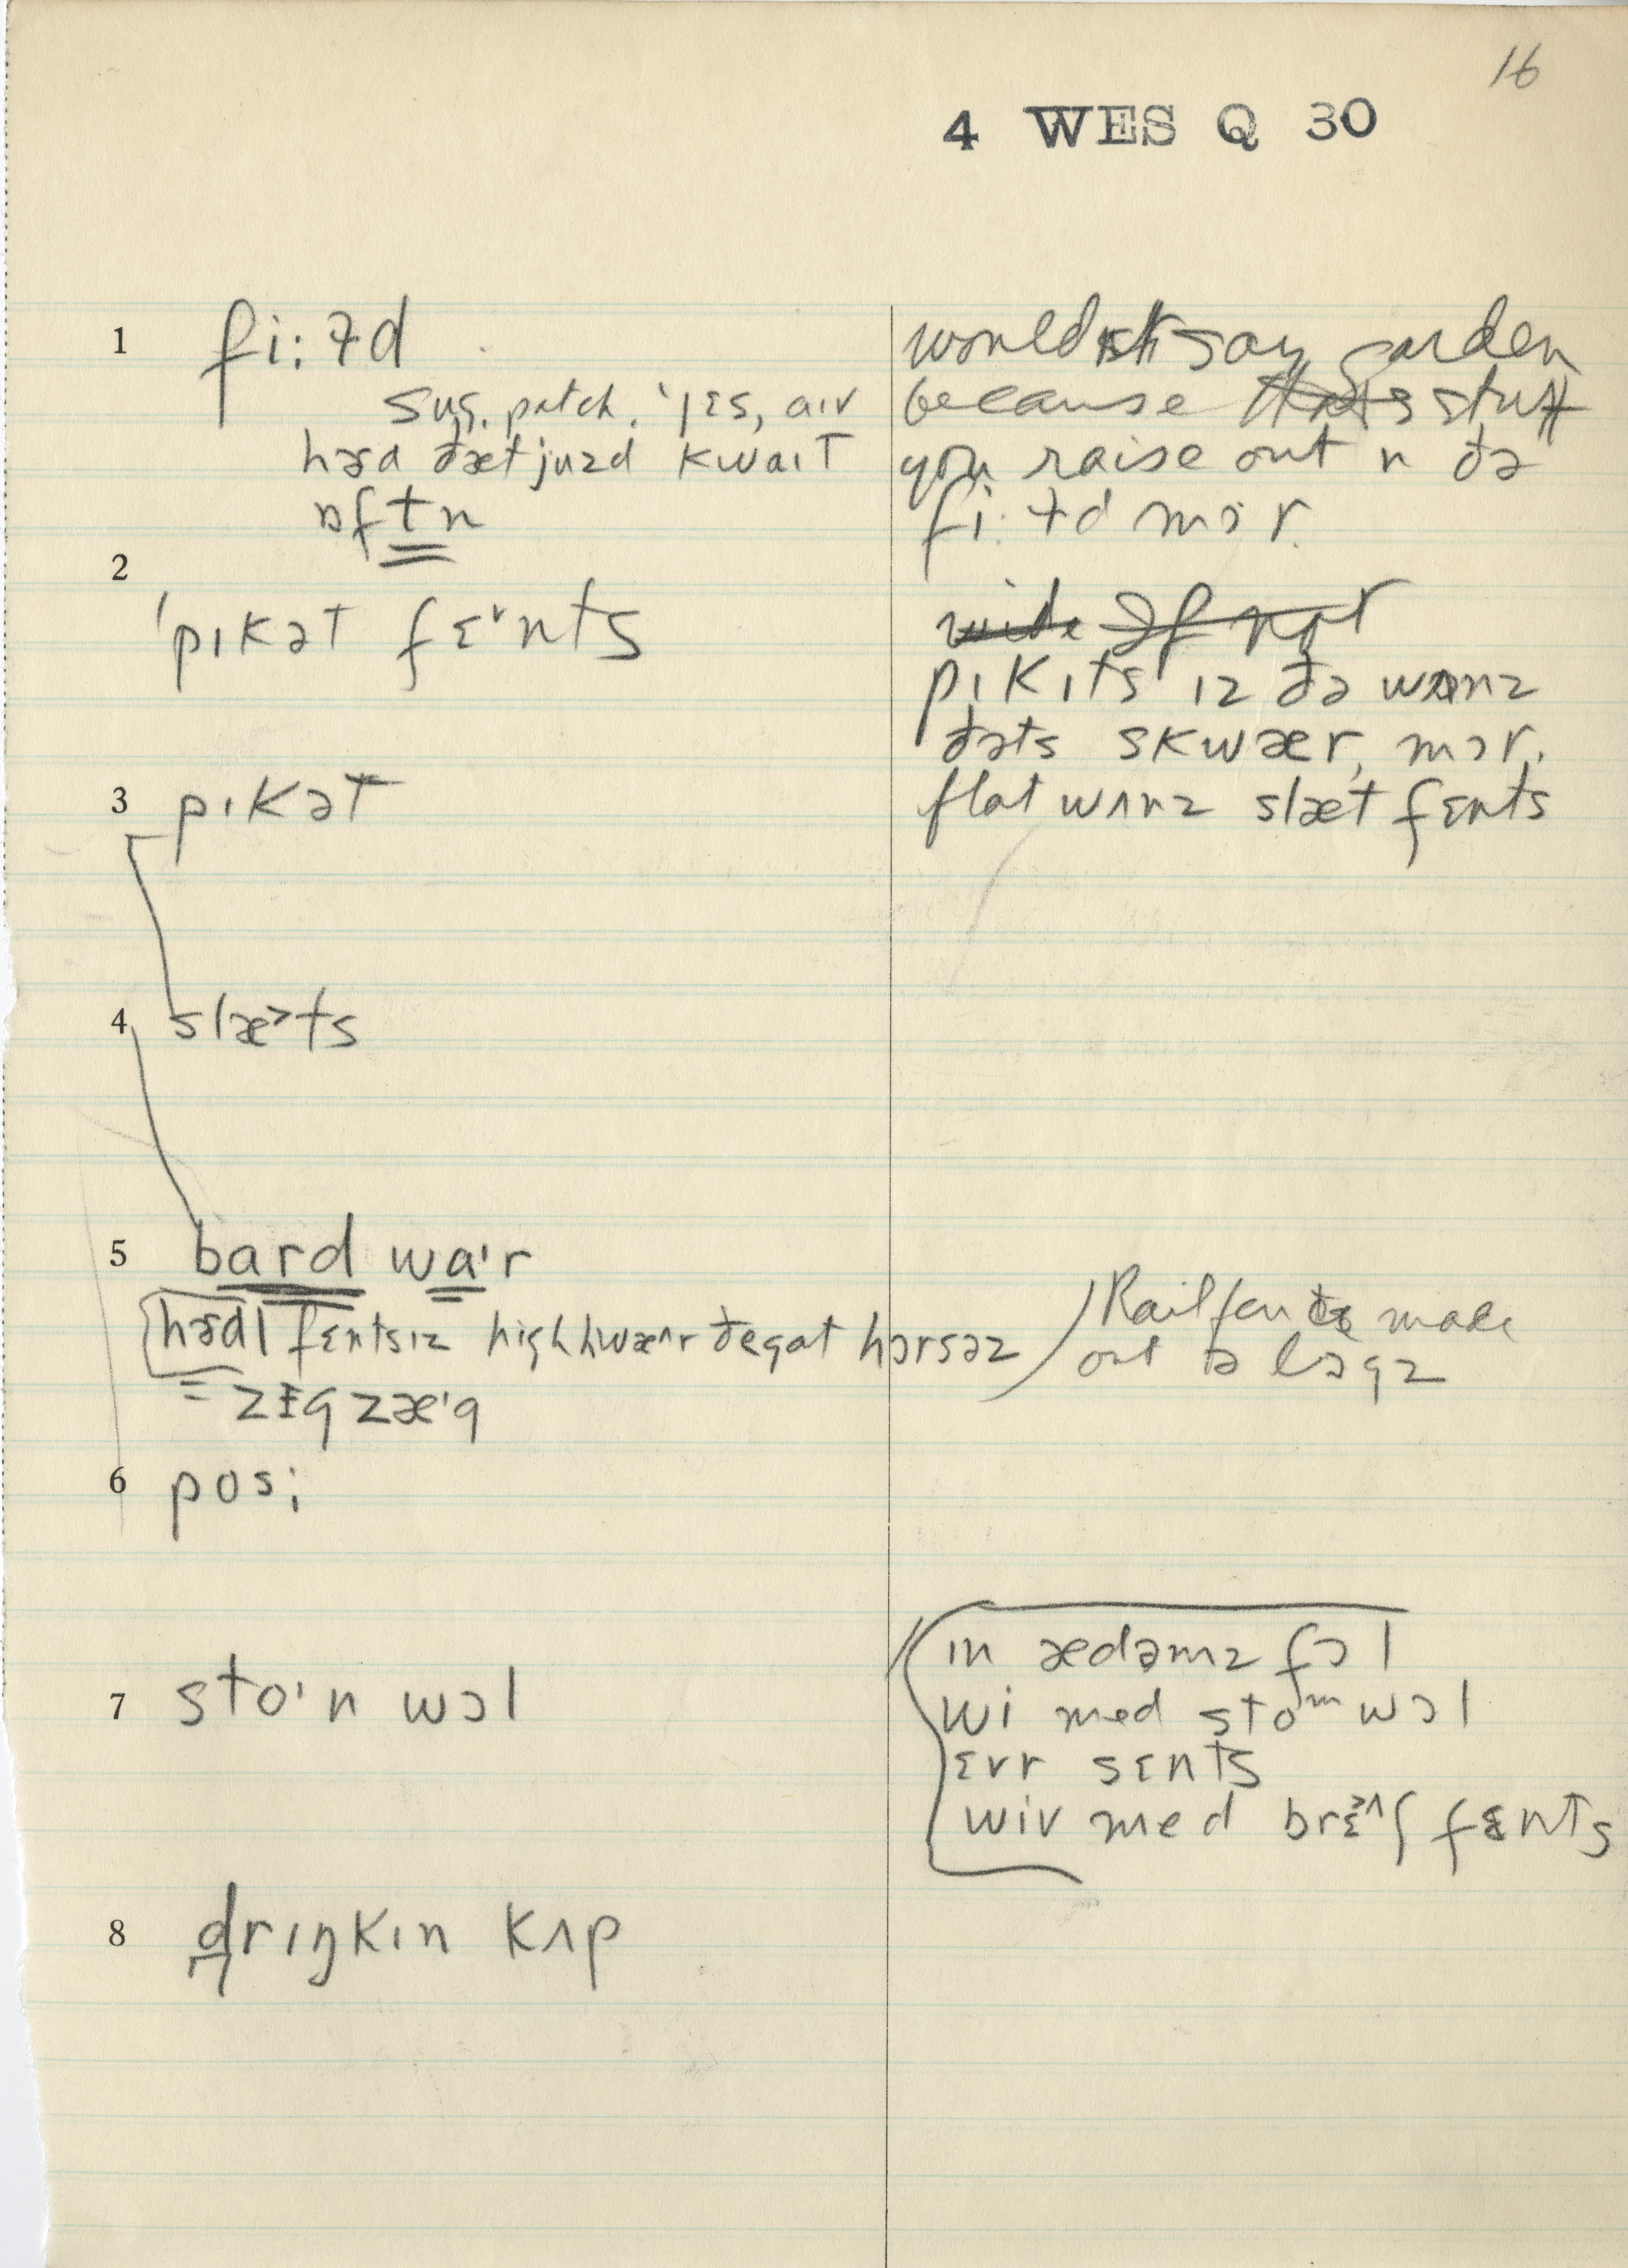 16
4 WES Q 30
1 fi:ɫd
sug. patch. 'jɛs, aɪv
hɜd ðæt juzd kwaɪt
ɒftn
wouldn't say garden
because stuff
you raise out n ðə
fi:ɫd mɔr.
2
'pɪkət fɛ˅nts
pɪkɪts ɪz ðə wʌnz
ðəts skwær, mɔr.
flat wʌnz slæt fɛnts
3 pɪkət
4 slæ>ts
5 bard wa'r
hɜdl fɛntsɪz high hwæ^r ðe gat hɔrsəz
= zɪg zæ'g
Rail fen made
out ə lɔgz
6 pos;
7 sto'n wɔl
ɪn ædəmz fɔl
wi med sto wɔl
ɛvr sɛnts
wiv med brɛ>^ʃ fɛnts
8 drɪŋkɪn kʌp